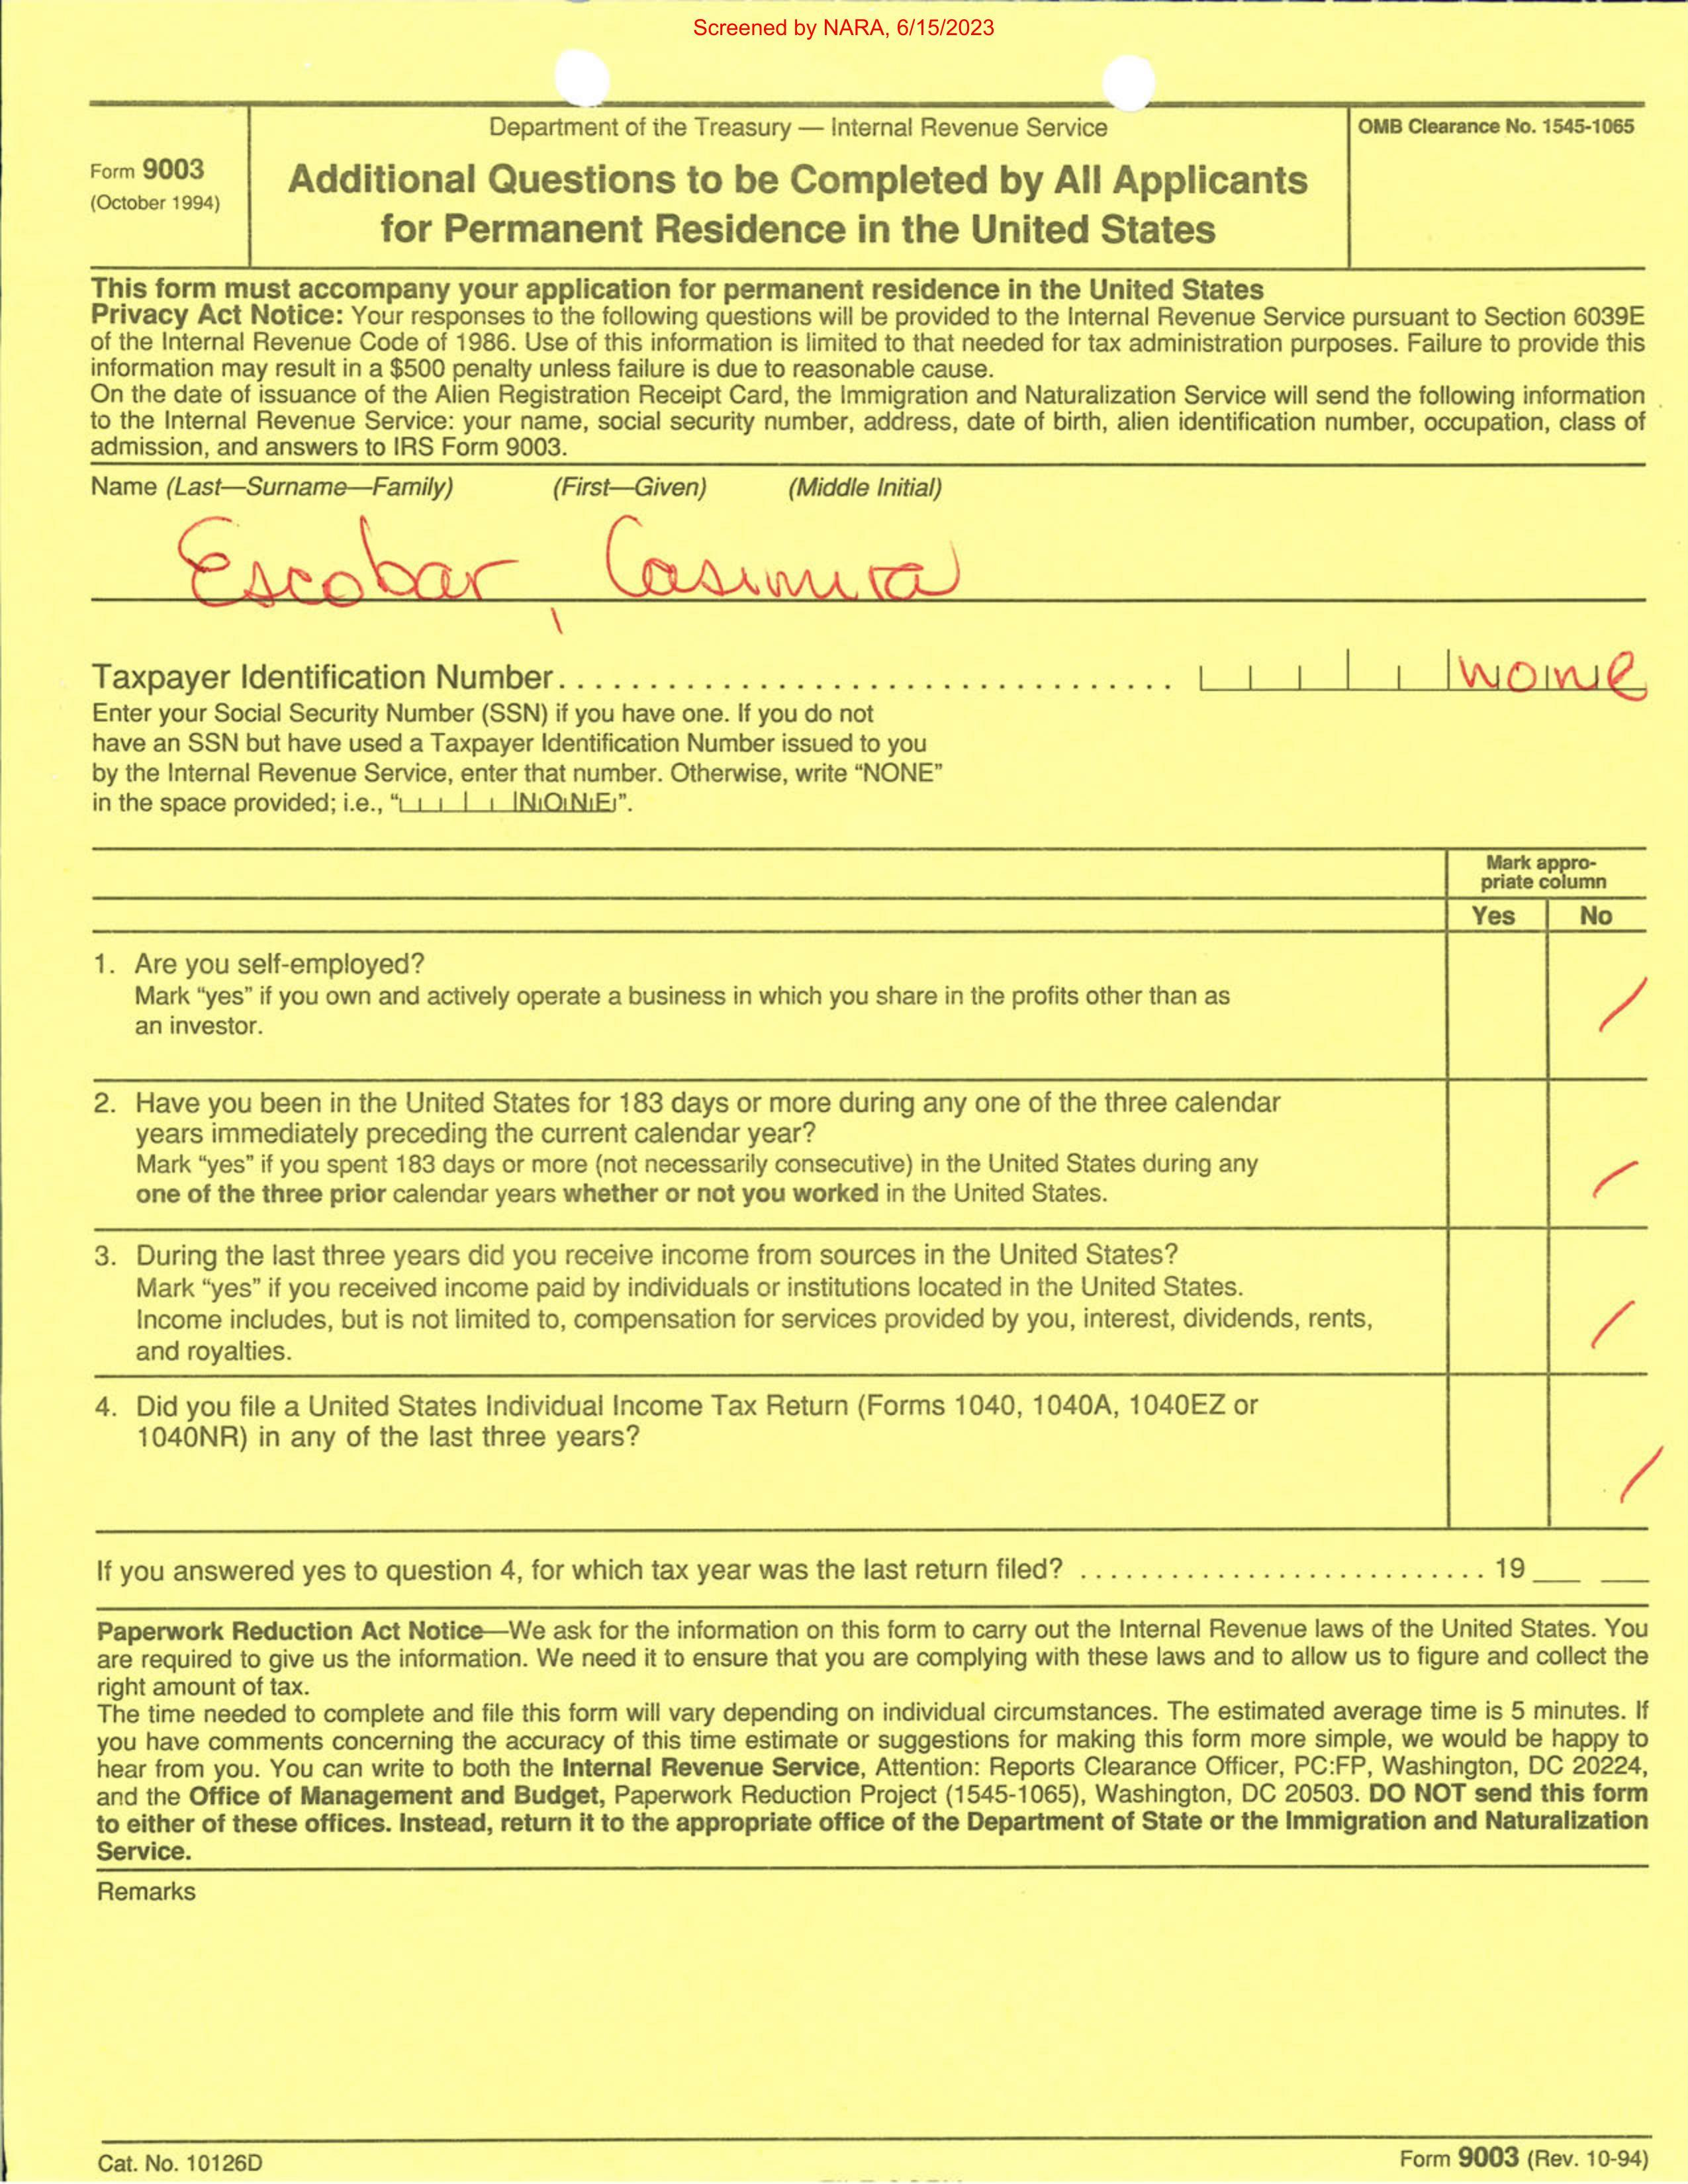 Screened by NARA, 6/15/2023
Department of the Treasury — Internal Revenue Service
OMB Clearance No. 1545-1065
Form 9003
(October 1994)
Additional Questions to be Completed by All Applicants
for Permanent Residence in the United States
This form must accompany your application for permanent residence in the United States
Privacy Act Notice: Your responses to the following questions will be provided to the Internal Revenue Service pursuant to Section 6039E
of the Internal Revenue Code of 1986. Use of this information is limited to that needed for tax administration purposes. Failure to provide this
information may result in a $500 penalty unless failure is due to reasonable cause.
On the date of issuance of the Alien Registration Receipt Card, the Immigration and Naturalization Service will send the following information
to the Internal Revenue Service: your name, social security number, address, date of birth, alien identification number, occupation, class of
admission, and answers to IRS Form 9003.
Name (Last—Surname—Family) (First—Given) (Middle Initial)
Escobar, Casimira
Taxpayer Identification Number. . . . . . . . . . . . . . . . . . . . . . . . . . . . . . . . . none
Enter your Social Security Number (SSN) if you have one. If you do not
have an SSN but have used a Taxpayer Identification Number issued to you
by the Internal Revenue Service, enter that number. Otherwise, write “NONE”
in the space provided; i.e., “NONE”.
Mark appro-
priate column
Yes No
1. Are you self-employed?
Mark “yes” if you own and actively operate a business in which you share in the profits other than as
an investor.
/
2. Have you been in the United States for 183 days or more during any one of the three calendar
years immediately preceding the current calendar year?
Mark “yes” if you spent 183 days or more (not necessarily consecutive) in the United States during any
one of the three prior calendar years whether or not you worked in the United States.
/
3. During the last three years did you receive income from sources in the United States?
Mark “yes” if you received income paid by individuals or institutions located in the United States.
Income includes, but is not limited to, compensation for services provided by you, interest, dividends, rents,
and royalties.
/
4. Did you file a United States Individual Income Tax Return (Forms 1040, 1040A, 1040EZ or
1040NR) in any of the last three years?
/
If you answered yes to question 4, for which tax year was the last return filed? . . . . . . . . . . . . . . . . . . . . . . . . . . . 19 __ __
Paperwork Reduction Act Notice—We ask for the information on this form to carry out the Internal Revenue laws of the United States. You
are required to give us the information. We need it to ensure that you are complying with these laws and to allow us to figure and collect the
right amount of tax.
The time needed to complete and file this form will vary depending on individual circumstances. The estimated average time is 5 minutes. If
you have comments concerning the accuracy of this time estimate or suggestions for making this form more simple, we would be happy to
hear from you. You can write to both the Internal Revenue Service, Attention: Reports Clearance Officer, PC:FP, Washington, DC 20224,
and the Office of Management and Budget, Paperwork Reduction Project (1545-1065), Washington, DC 20503. DO NOT send this form
to either of these offices. Instead, return it to the appropriate office of the Department of State or the Immigration and Naturalization
Service.
Remarks
Cat. No. 10126D
Form 9003 (Rev. 10-94)